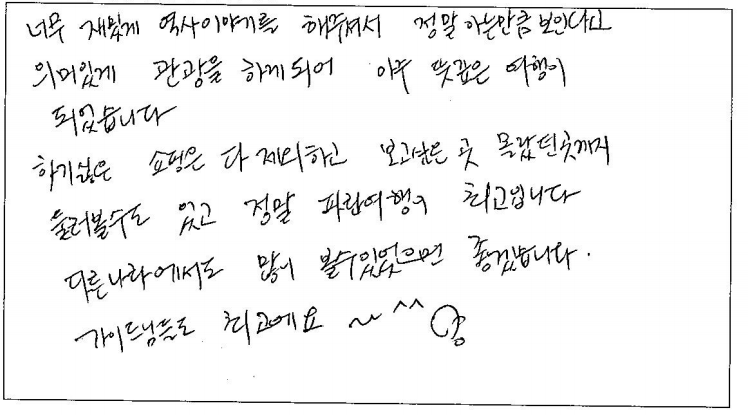 너무 재밌게 역사이야기를 해주셔서 정말 아는만큼 보인다고
의미있게 관광을 하게되어 아주 뜻깊은 여행이
되었습니다
하기싫은 쇼핑은 다 제외하고 보고싶은 곳 몰랐던곳까지
둘러볼수도 있고 정말 파란여행이 최고입니다
다른나라에서도 많이 볼수있었으면 좋겠습니다.
가이드님들도 최고에요 ~ ^^